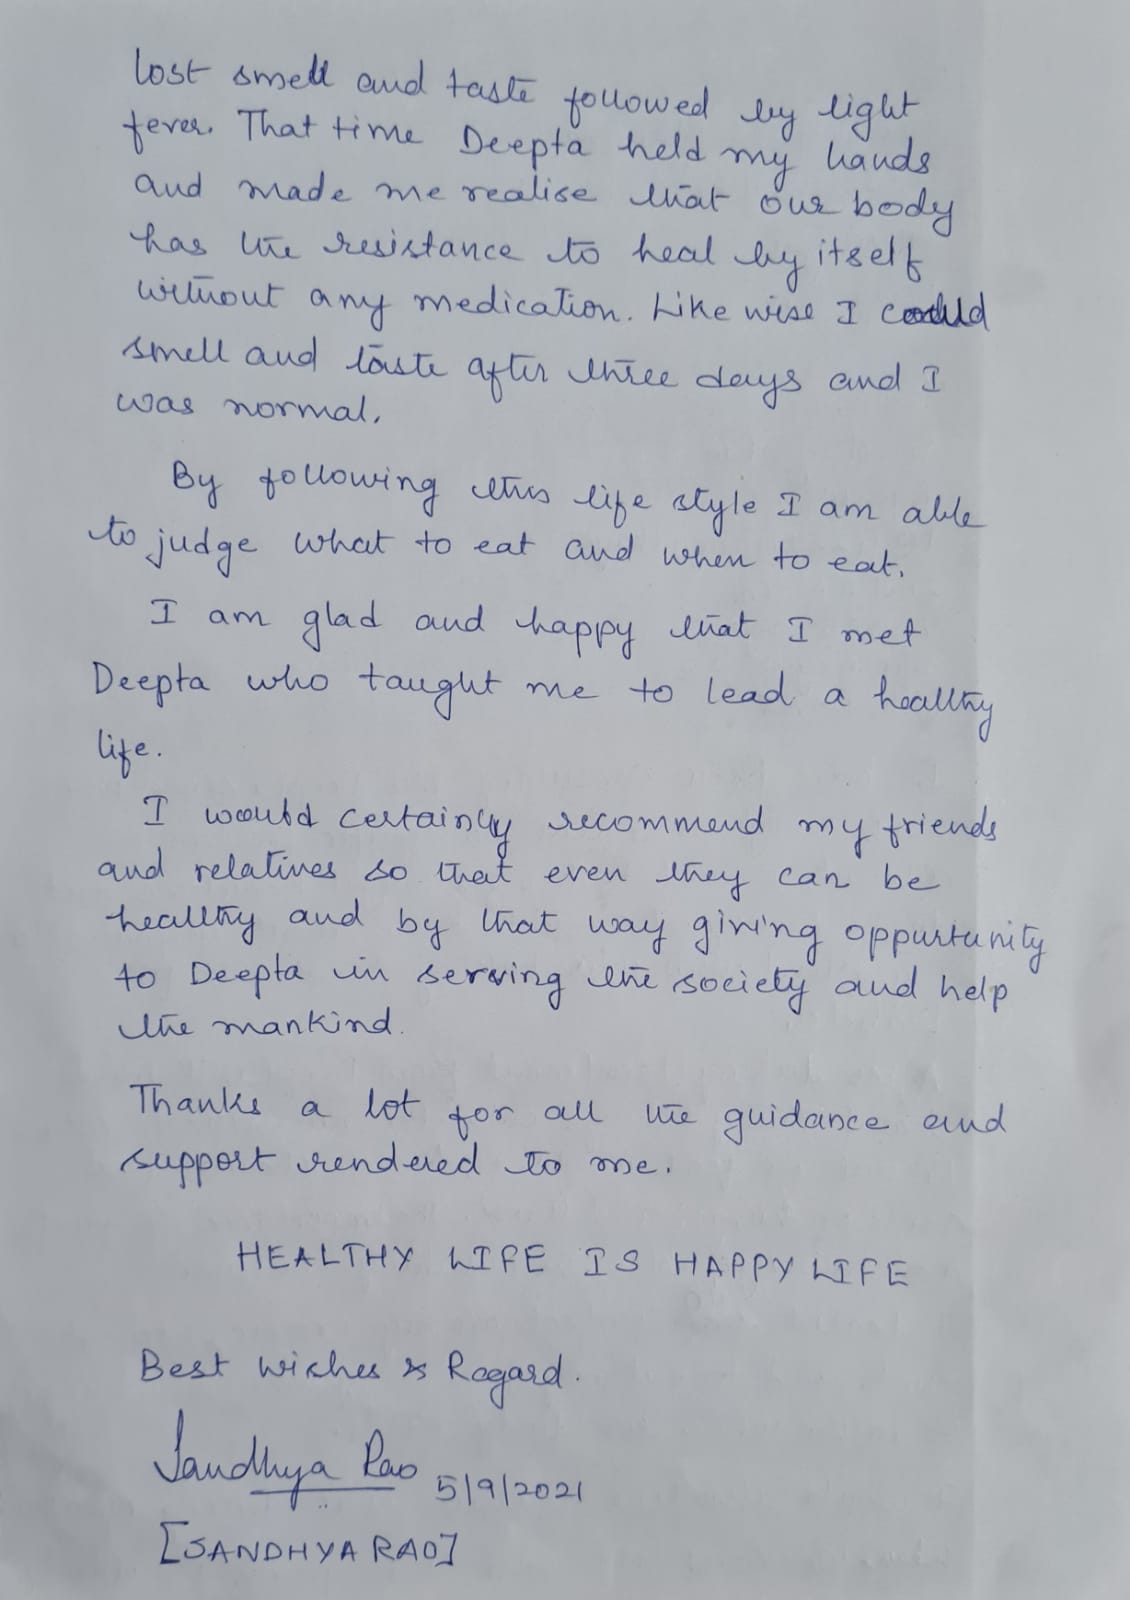 lost smell and taste followed by light
fever. That time Deepta held my hands
and made me realise that our body
has the resistance to heal by itself
without any medication. Like wise I could
smell and taste after three days and I
was normal.
By following this life style I am able
to judge what to eat and when to eat.
I am glad and happy that I met
Deepta who taught me to lead a healthy
life.
I would certainly recommend my friends
and relatives so that even they can be
healthy and by that way giving oppurtunity
to Deepta in serving the society and help
the mankind.
Thanks a lot for all the guidance and
support rendered to me.
HEALTHY LIFE IS HAPPY LIFE
Best Wishes & Regard.
Sandhya Rao 5/9/2021
[SANDHYA RAO]